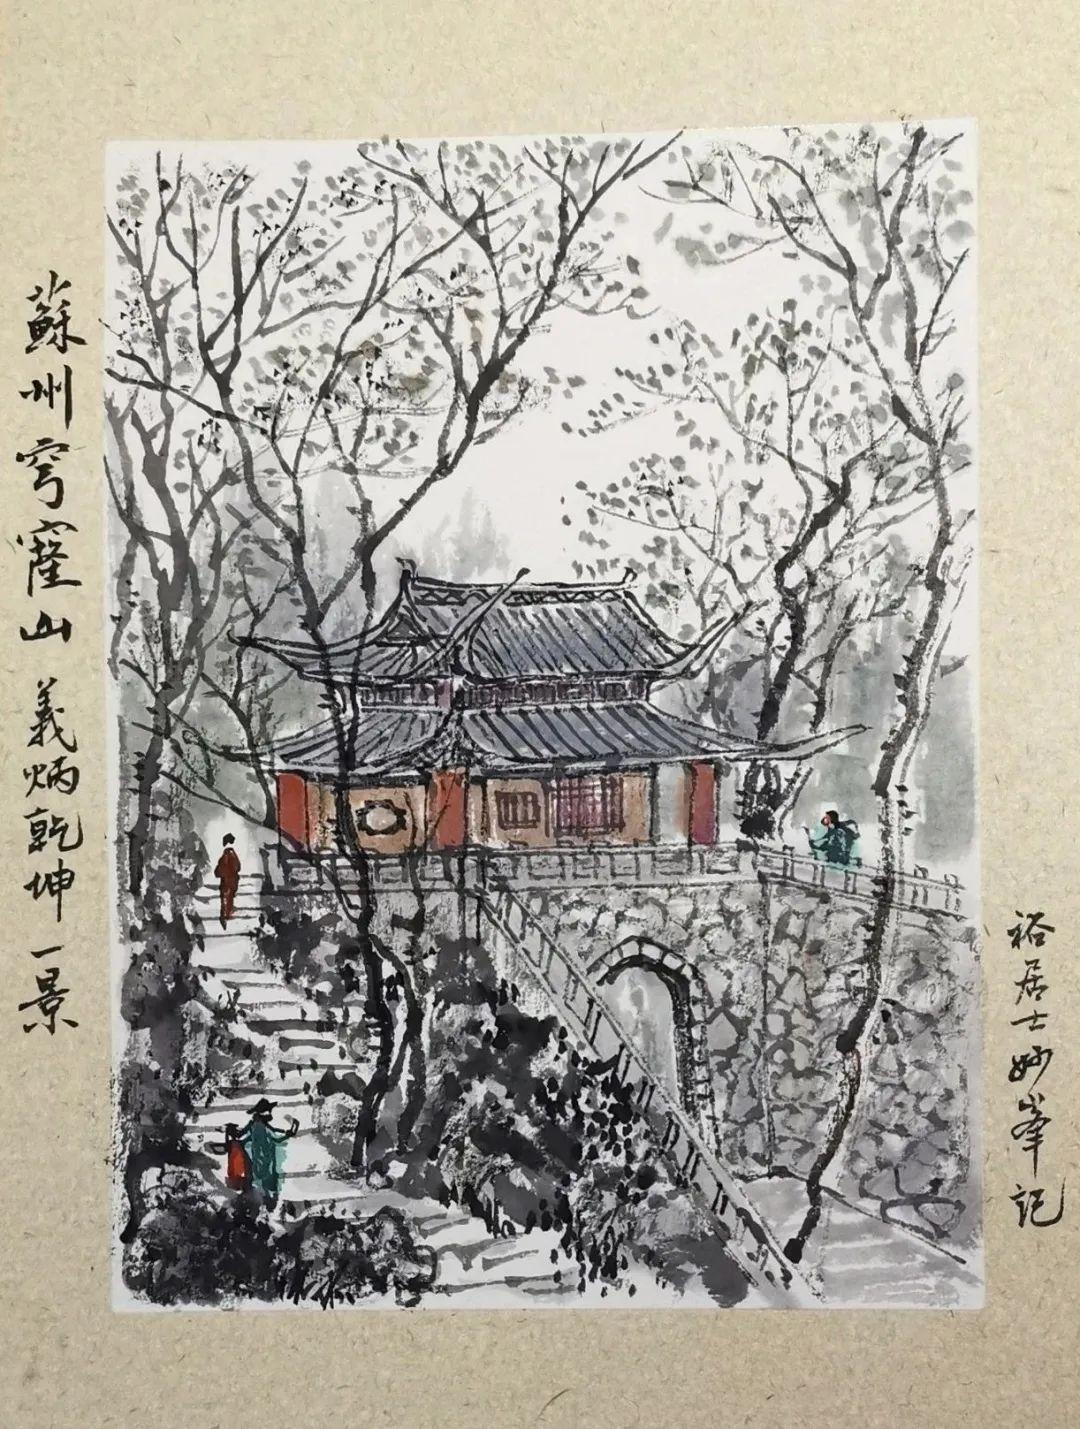 蘇州穹窿山 義炳乾坤一景
裕居士妙峯記